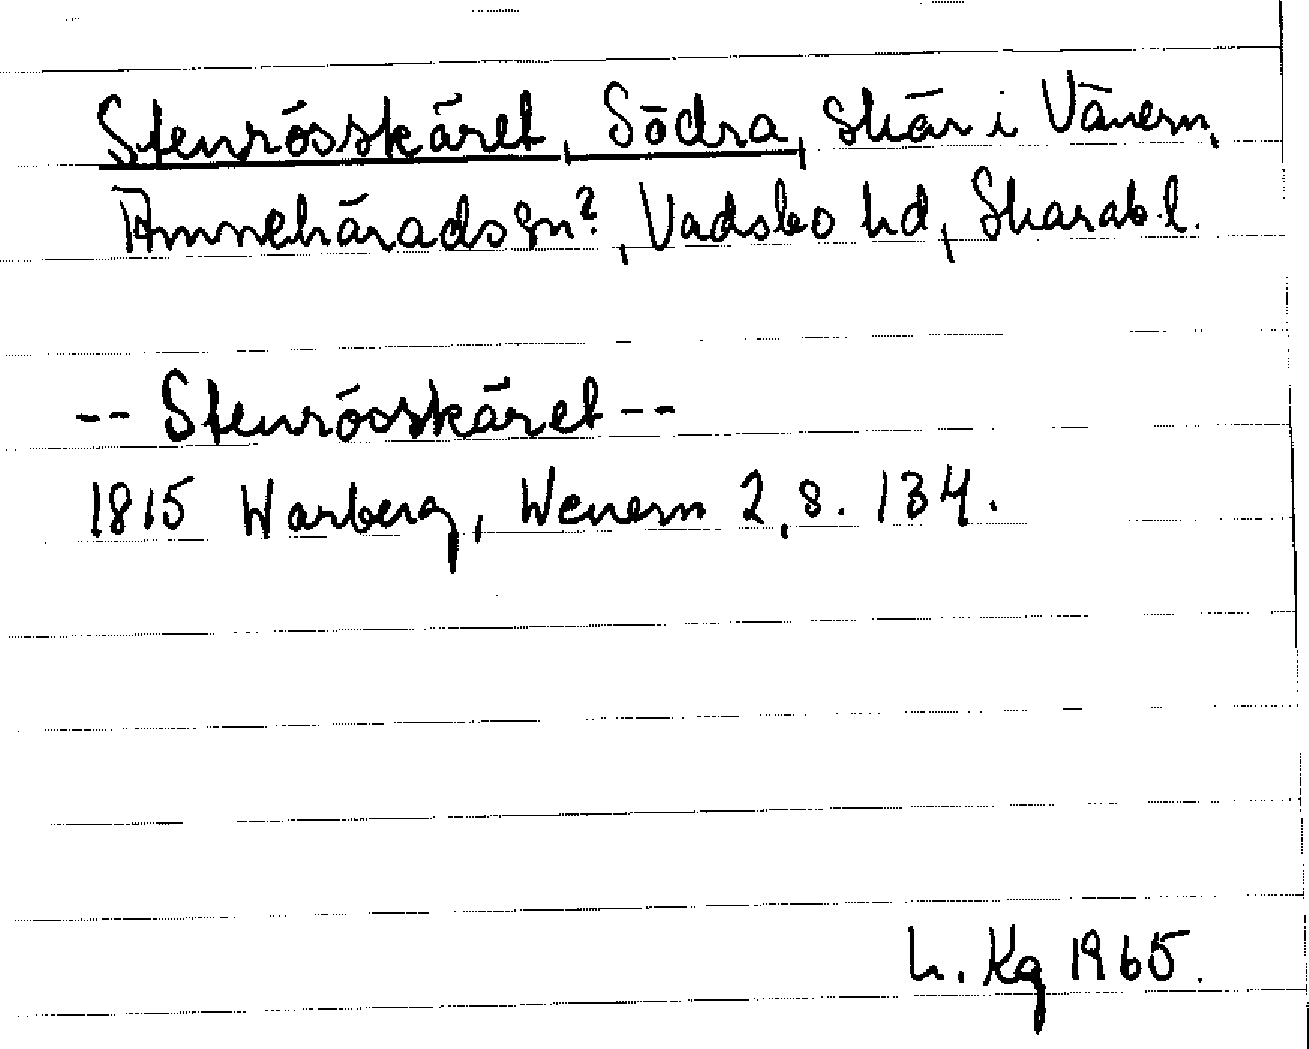 Stenrösskäret, Södra, skär i Vänern,
Amnehärads sn?, Vadsbo hd, Skarab. l.
-- Stenrösskäret --
1815 Warberg, Wenern 2, s. 134.
L. Kg 1965.